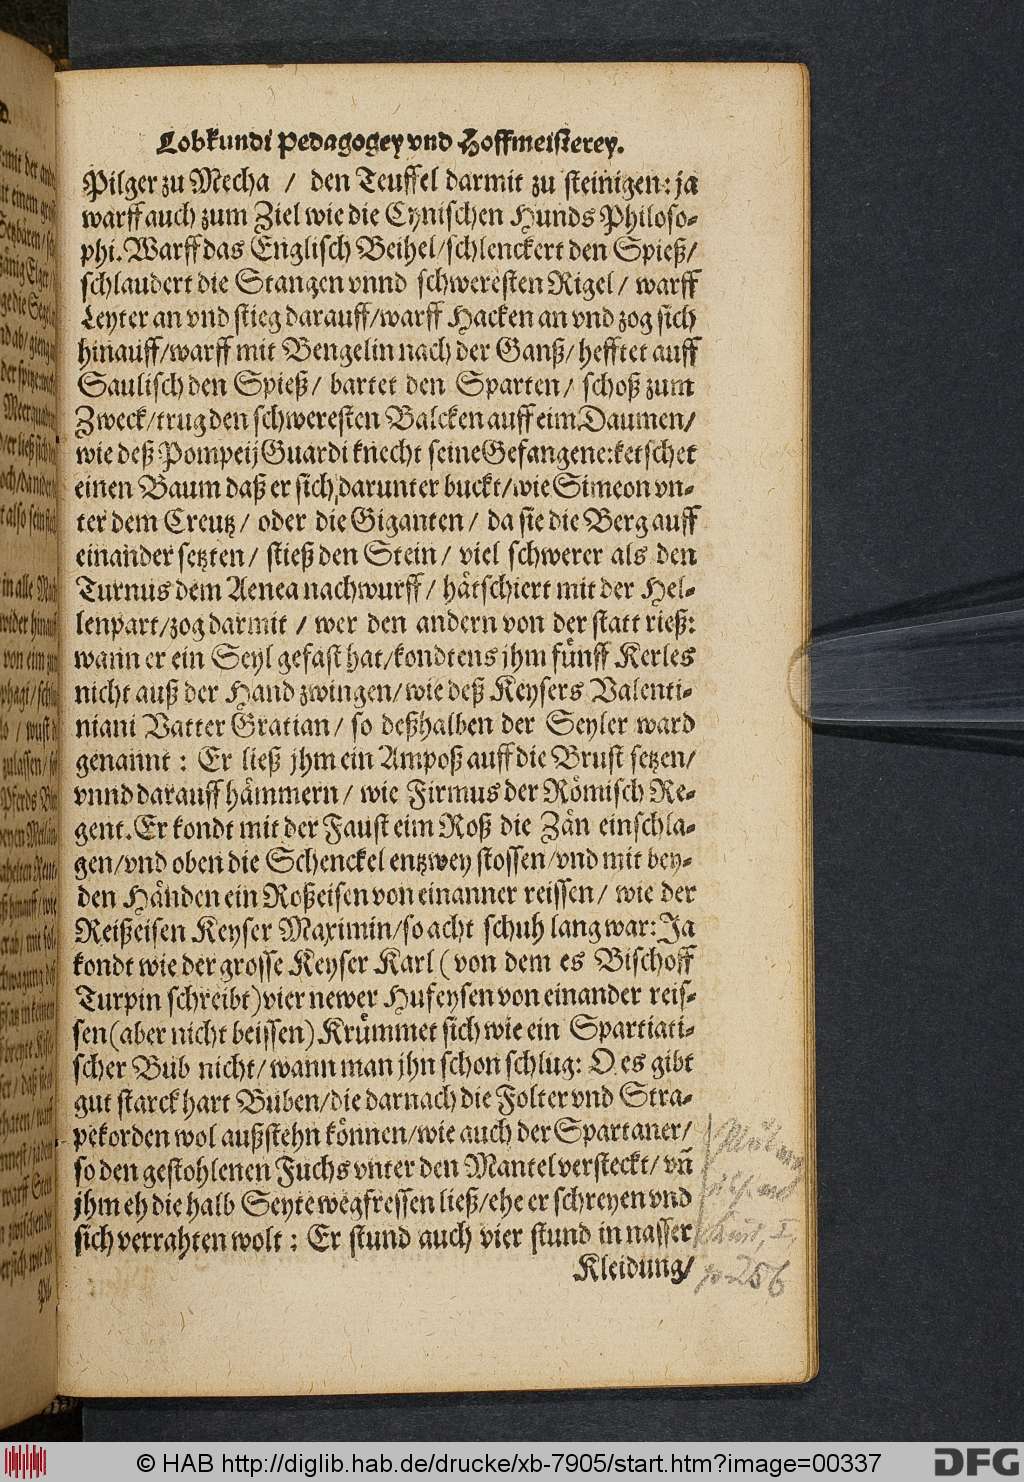 Lobkundi Pedagogey vnd Hoffmeisterey.
Pilger zu Mecha / den Teuffel darmit zu steinigen: ja
warff auch zum Ziel wie die Cynischen Hunds Philoso-
phi. Warff das Englisch Beihel/schlenckert den Spieß/
schlaudert die Stangen vnnd schweresten Rigel/ warff
Leyter an vnd stieg darauff/warff Hacken an vnd zog sich
hinauff/warff mit Bengelin nach der Ganß/hefftet auff
Saulisch den Spieß/ bartet den Sparten/ schoß zum
Zweck/trug den schweresten Balcken auff eim Daumen/
wie deß Pompeij Guardi knecht seine Gefangene: ketschet
einen Baum daß er sich darunter buckt/wie Simeon vn-
ter dem Creutz/ oder die Giganten/ da sie die Berg auff
einander setzten/ stieß den Stein/ viel schwerer als den
Turnus dem Aenea nachwurff/ hätschiert mit der Hel-
lenpart/zog darmit / wer den andern von der statt rieß:
wann er ein Seyl gefast hat/kondtens jhm fünff Kerles
nicht auß der Hand zwingen/wie deß Keysers Valenti-
niani Vatter Gratian/ so deßhalben der Seyler ward
genannt : Er ließ jhm ein Ampoß auff die Brust setzen/
vnnd darauff hämmern/ wie Firmus der Römisch Re-
gent. Er kondt mit der Faust eim Roß die Zän einschla-
gen/vnd oben die Schenckel entzwey stossen/vnd mit bey-
den Händen ein Roßeisen von einanner reissen/ wie der
Reißeisen Keyser Maximin/so acht schuh lang war: Ja
kondt wie der grosse Keyser Karl (von dem es Bischoff
Turpin schreibt) vier newer Hufeysen von einander reis-
sen (aber nicht beissen) Krümmet sich wie ein Spartiati-
scher Bub nicht/wann man jhn schon schlug: O es gibt
gut starck hart Buben/die darnach die Folter vnd Stra-
pekorden wol außstehn können/wie auch der Spartaner/
so den gestohlenen Fuchs vnter den Mantel versteckt/ vñ
jhm eh die halb Seyte wegfressen ließ/ehe er schreyen vnd
sich verrahten wolt : Er stund auch vier stund in nasser
Kleidung/
p 256
© HAB http://diglib.hab.de/drucke/xb-7905/start.htm?image=00337
DFG